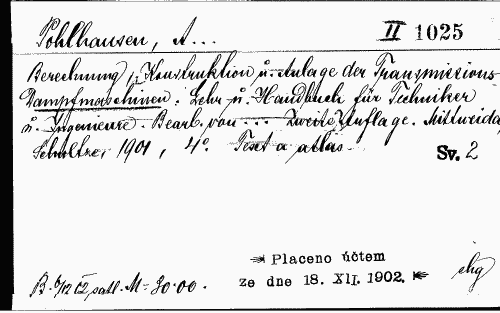 Pohlhausen, A... II 1025
Berechnung, Konstruktion u. Anlage der Transmissions-
Dampfmaschinen. Lehr- u. Handbuch für Techniker
u. Ingenieure. Bearb. von ... Zweite Auflage. Mittweida,
Schultze, 1901, 4°. Text a atlas. Sv. 2
Placeno účtem
ze dne 18. XII. 1902.
M- 30·00.